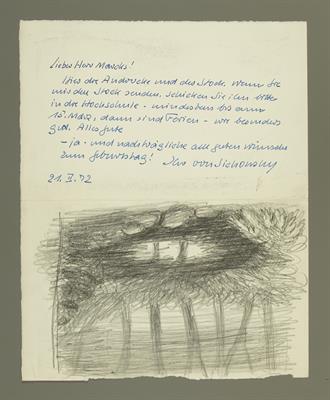 Lieber Herr Marcks!
Hier die Andrucke und der Stock. Wenn Sie
mir den Stock senden, schicken Sie ihn bitte
in die Hochschule - mindestens bis zum
15. März, dann sind Ferien - wir besonders
gut. Alles Gute
- ja - und nachträgliche alle guten Wünsche
zum Geburtstag! Ihr von Sichowsky
21. II. 72